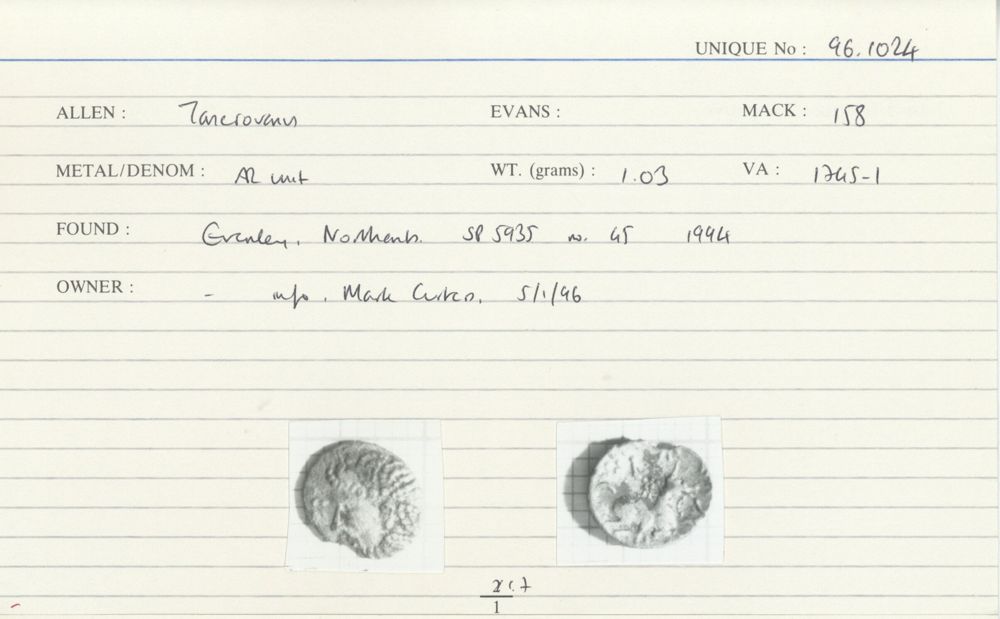 UNIQUE No : 96.1024
ALLEN : Tasciovanus EVANS : MACK : 158
METAL/DENOM : AR unit WT. (grams) : 1.03 VA : 1745-1
FOUND : Evenley, Northants. SP 5935 no. 45 1994
OWNER : - info. Mark Curteis, 5/1/96
1